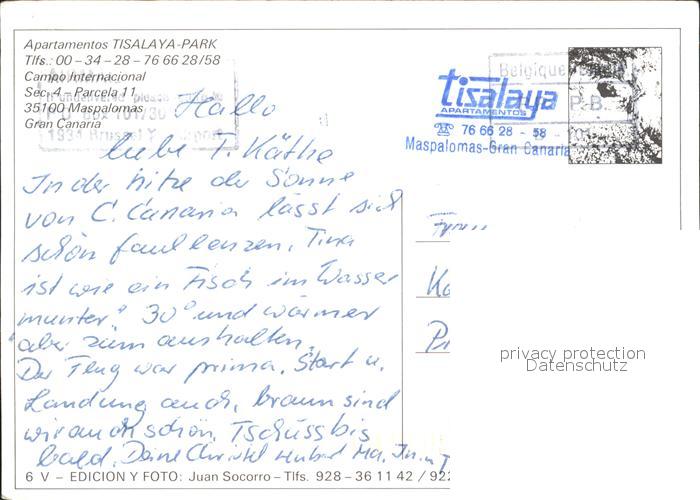 Apartamentos TISALAYA-PARK
Tlfs.: 00 - 34 - 28 - 76 66 28/58
Campo Internacional
Sec. 4 - Parcela 11
35100 Maspalomas
Gran Canaria
Belgique
P.B.
tisalaya
APARTAMENTOS
☎ 76 66 28 - 58
Maspalomas-Gran Canaria
Hallo
liebe T. Käthe
In der Hitze der Sonne
von G. Canaria lässt sich
schön faullenzen. Tina
ist wie ein Fisch im Wasser
munter" 30° und wärmer
aber zum aushalten.
Der Flug war prima, Start u.
Landung auch, braun sind
wir auch schön. Tschüss bis
bald. Deine Christel
Frau
privacy protection
Datenschutz
6 V - EDICION Y FOTO: Juan Socorro - Tlfs. 928 - 36 11 42 / 922